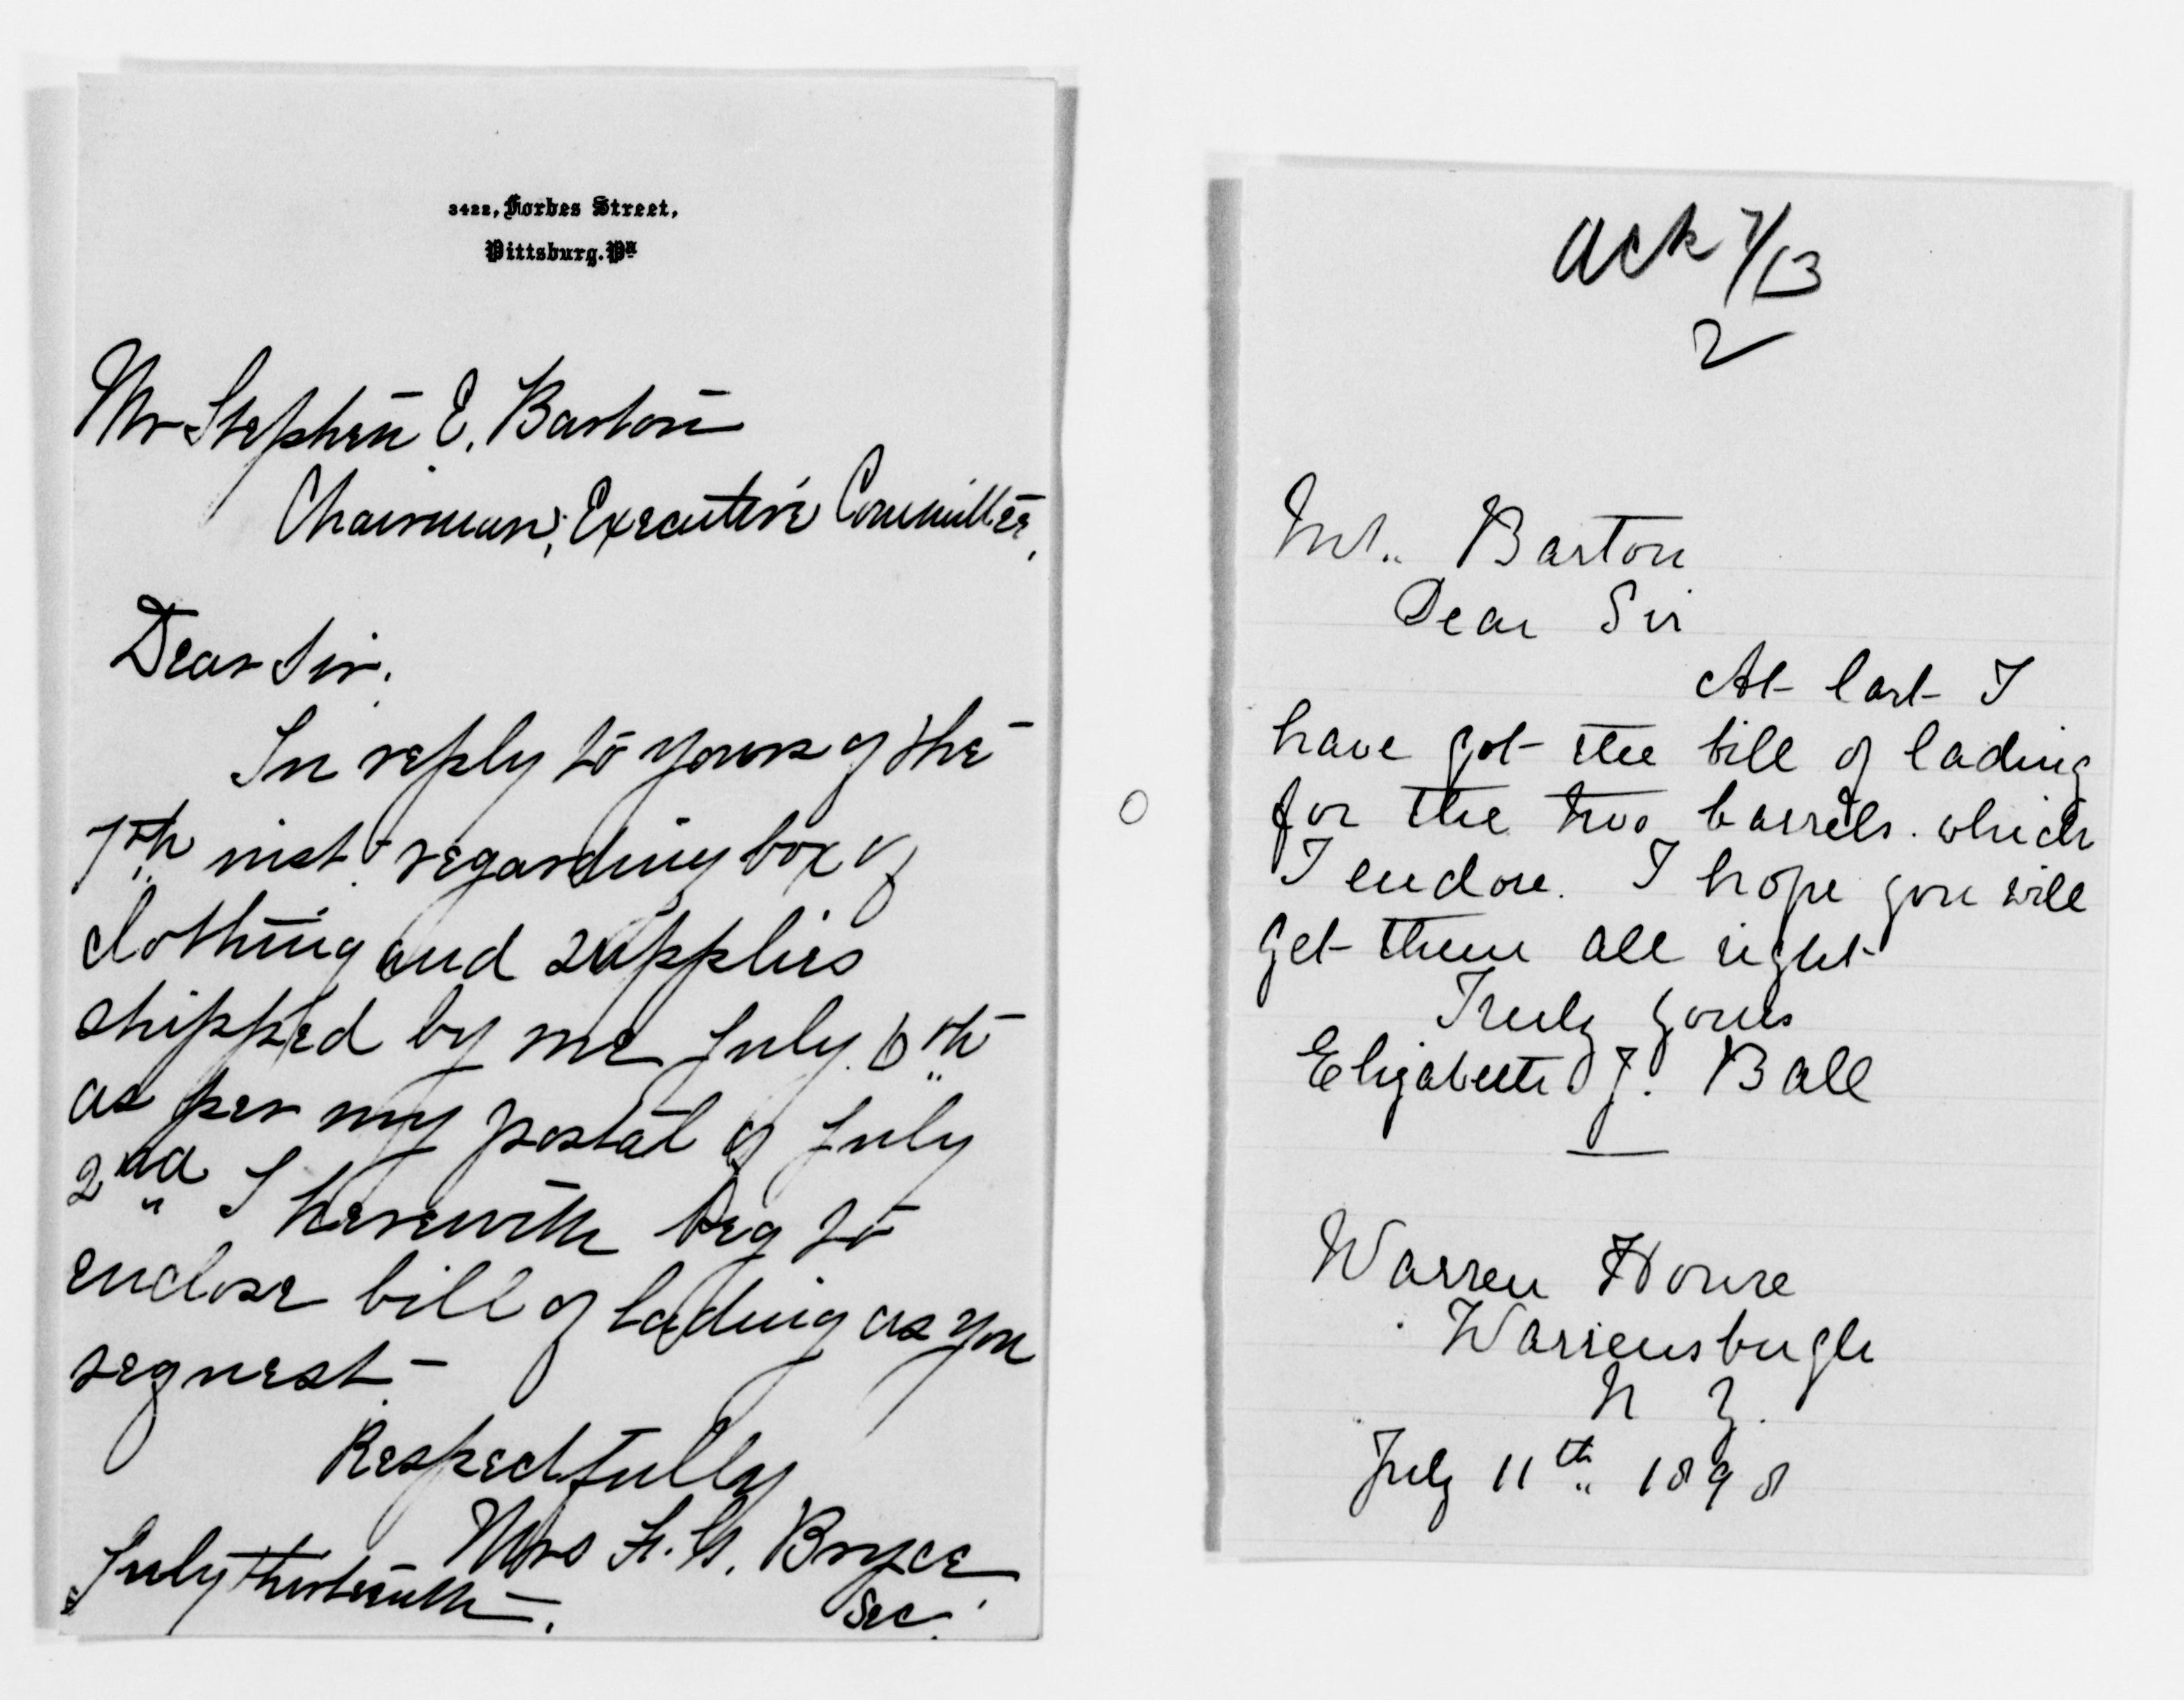 3422, Forbes Street,
Pittsburg. Pa
Mr Stephen E. Barton
Chairman, Executive Committee,
Dear Sir.
In reply to yours of the
7th inst. regarding box of
clothing and supplies
shipped by me July 6th
as per my postal of July
2nd I herewith beg to
enclose bill of lading as you
request.
Respectfully
Mrs F. G. Bryce
Sec.
July thirteenth.
Ack 7/13
2
Mr. Barton
Dear Sir
At last I
have got the bill of lading
for the two barrels. which
I enclose. I hope you will
get them all right
Truly yours
Elizabeth J. Ball
Warren House
Warrensburgh
N Y.
July 11th 1898